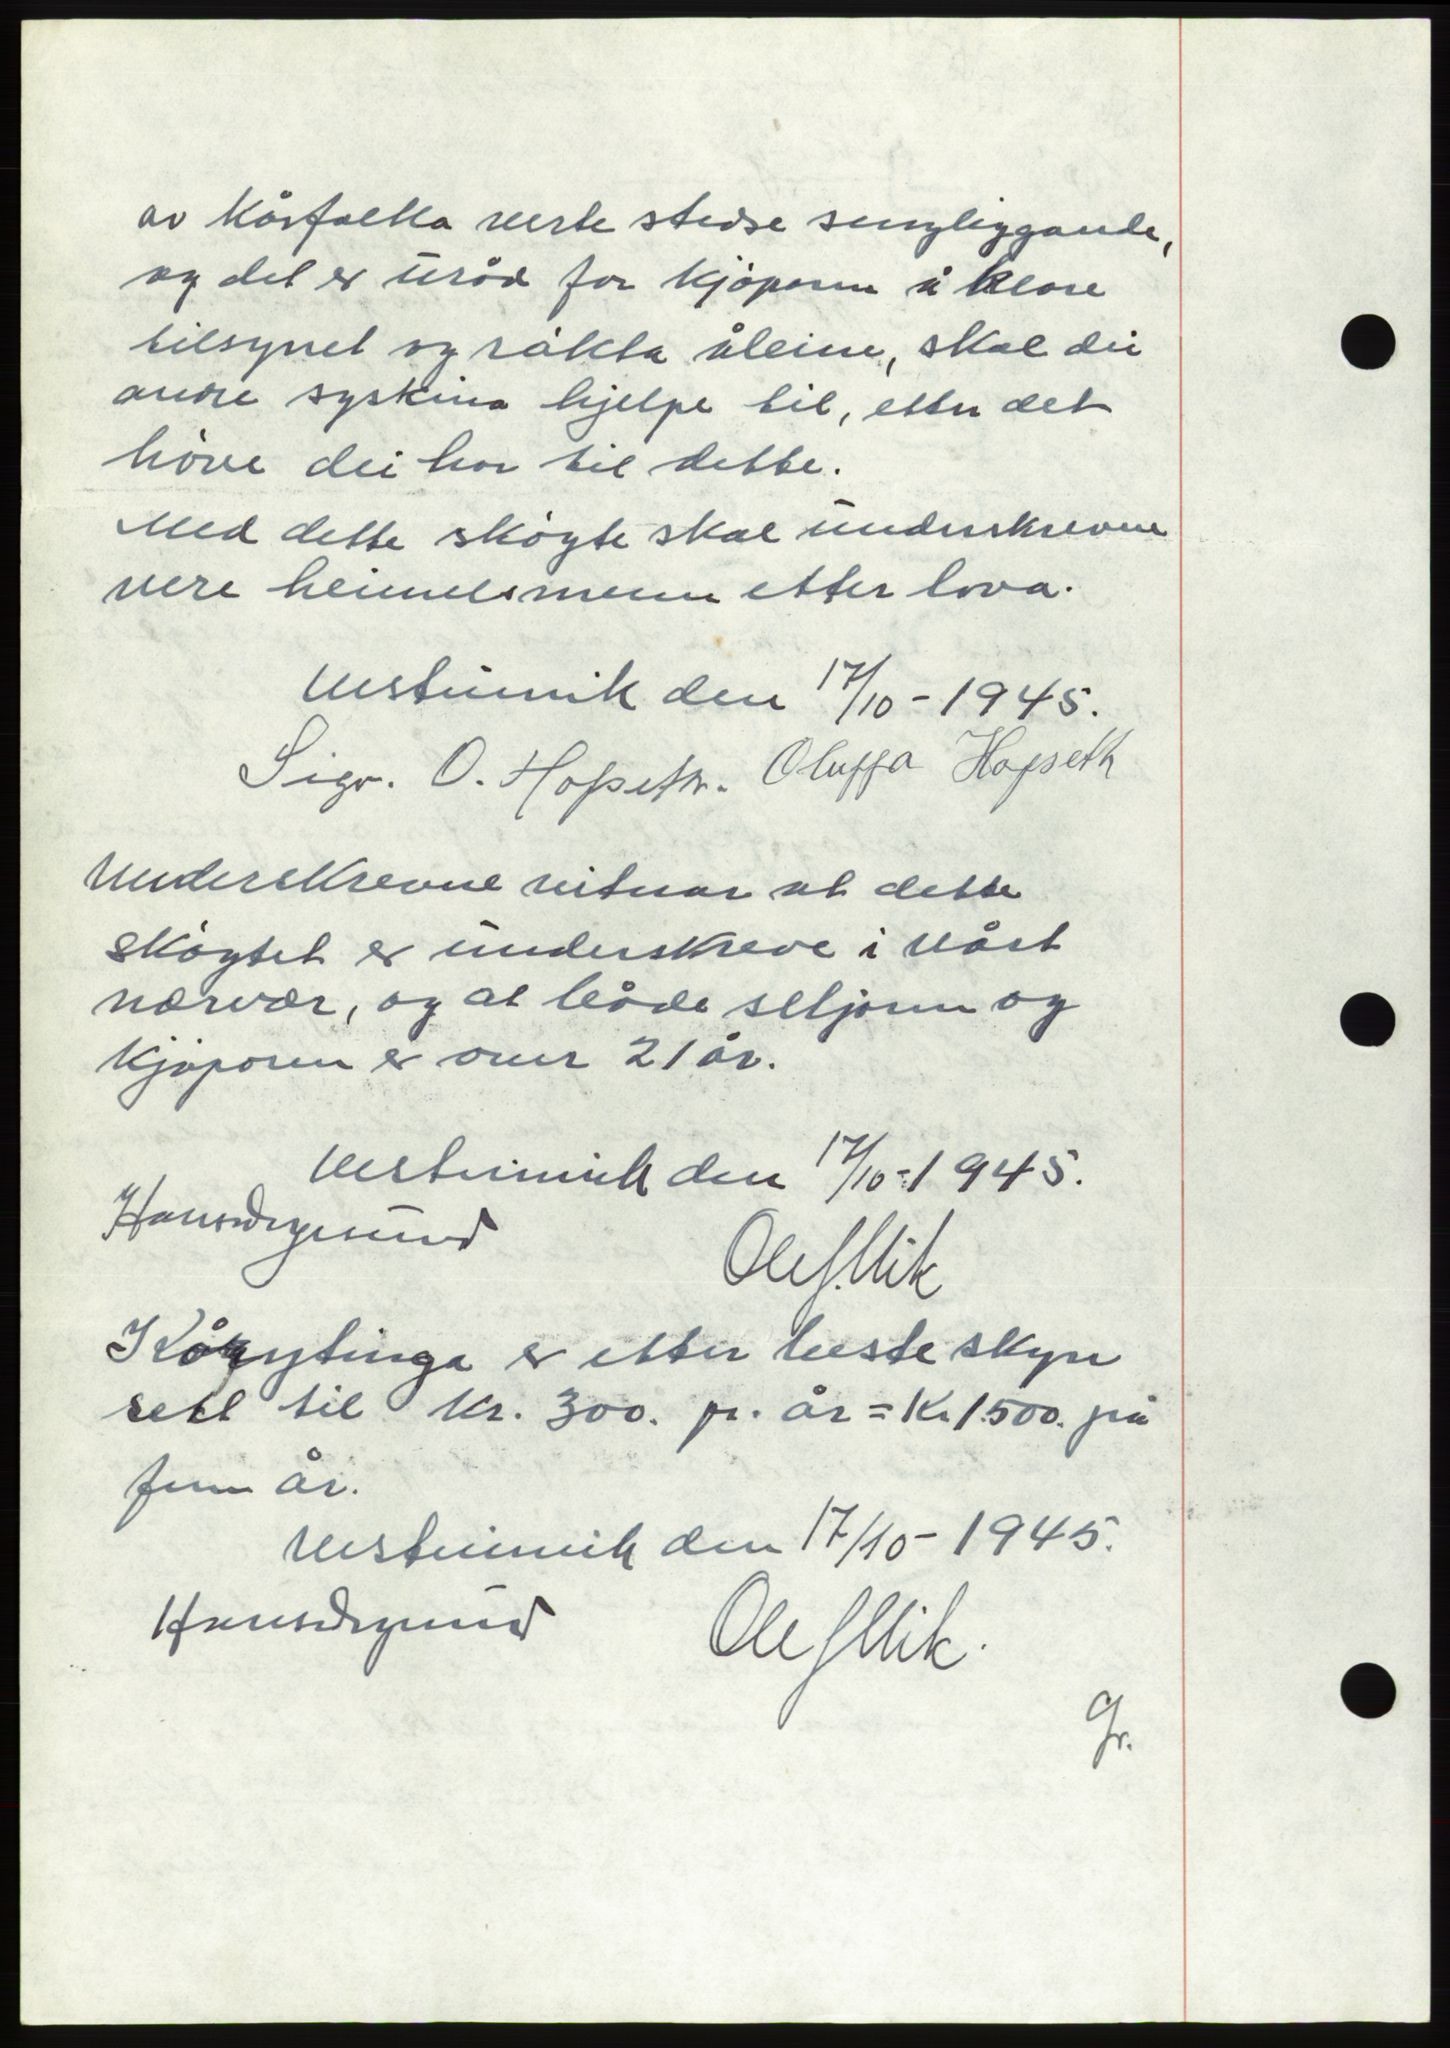 av kårfolka verte stedse sengliggande,
og det er uråd for kjøparen å klare
tilsynet og råkta åleine, skal dei
andre syskina hjelpe til, etter det
høve dei har til dette.
Med dette skøyte skal underskrevne
vere heimelsmenn etter lova.
Vestnes den 17/10-1945.
Sigv. O. Hofseth. Oluffa Hofseth
Underskrevne vitnar at dette
skøytet er underskreve i vårt
nærvær, og at både seljaren og
kjøparen er over 21 år.
den 17/10-1945.
Ole J. Vik
Kårytinga er etter beste skyn
sett til kr. 300. pr. år = Kr. 1500. på
fem år.
den 17/10-1945.
Ole J. Vik.
Gr.